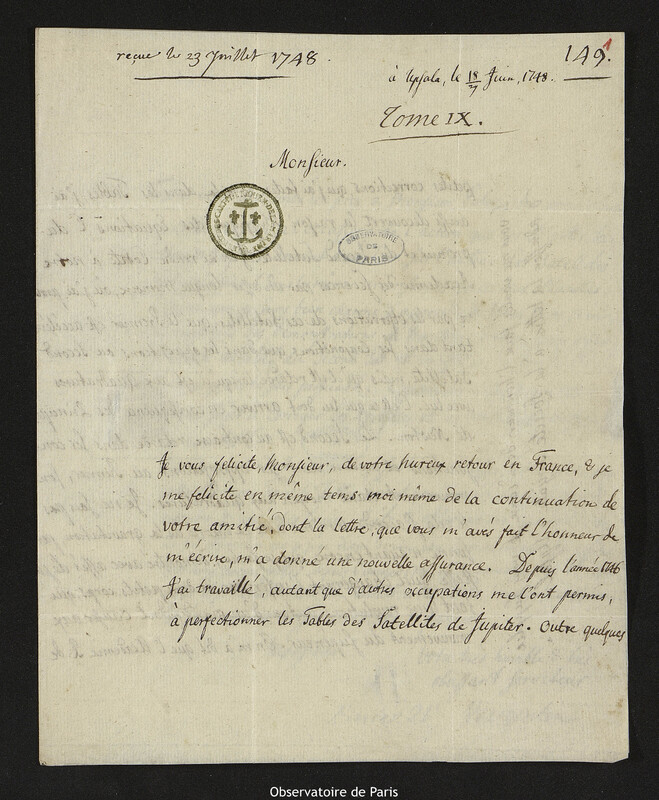 reçue le 23 Juillet 1748.
149.1
à Upsala, le 18/7 Juin, 1748.
Tome IX.
Monsieur.
OBSERVATOIRE
DE
PARIS
Je vous felicite, Monsieur, de votre hureux retour en France, & je
me felicite en même tems moi même de la continuation de
votre amitié, dont la lettre, que vous m'avés fait l'honneur de
m'écrire, m'a donné une nouvelle assurance. Depuis l'année 1746
J'ai travaillé, autant que d'autres occupations me l'ont permis,
à perfectionner les Tables des Satellites de Jupiter. Outre quelques
Observatoire de Paris